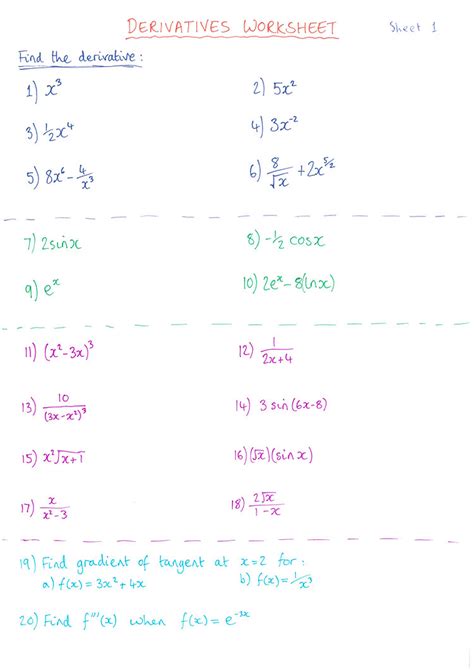 DERIVATIVES WORKSHEET Sheet 1
Find the derivative:
1) x³ 2) 5x²
3) ½x⁴ 4) 3x⁻²
5) 8x⁶ - 4/x³ 6) 8/√x + 2x^(5/2)
7) 2sinx 8) -½ cosx
9) eˣ 10) 2eˣ - 8(lnx)
11) (x² - 3x)³ 12) 1/(2x+4)
13) 10/(3x-x²)³ 14) 3 sin(6x-8)
15) x²√(x+1) 16) (√x)(sinx)
17) x/(x²-3) 18) 2√x/(1-x)
19) Find gradient of tangent at x=2 for:
a) f(x) = 3x² + 4x b) f(x) = 1/x³
20) Find f'''(x) when f(x) = e^(-3x)